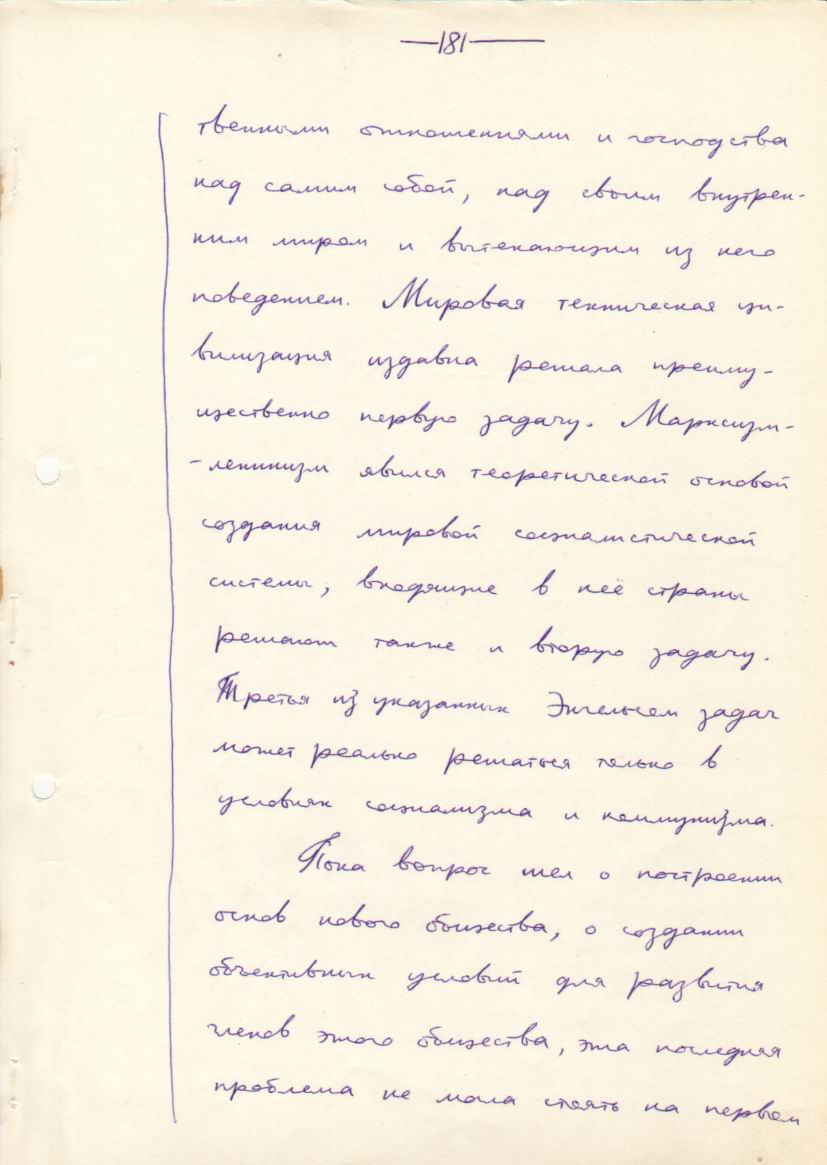 —181—
твенными отношениями и господства
над самим собой, над своим внутрен-
ним миром и вытекающим из него
поведением. Мировая техническая ци-
вилизация издавна решала преиму-
щественно первую задачу. Марксизм-
-ленинизм явился теоретической основой
создания мировой социалистической
системы, входящие в неё страны
решают также и вторую задачу.
Третья из указанных Энгельсом задач
может реально решаться только в
условиях социализма и коммунизма.
Пока вопрос шел о построении
основ нового общества, о создании
объективных условий для развития
членов этого общества, эта последняя
проблема не могла стоять на первом